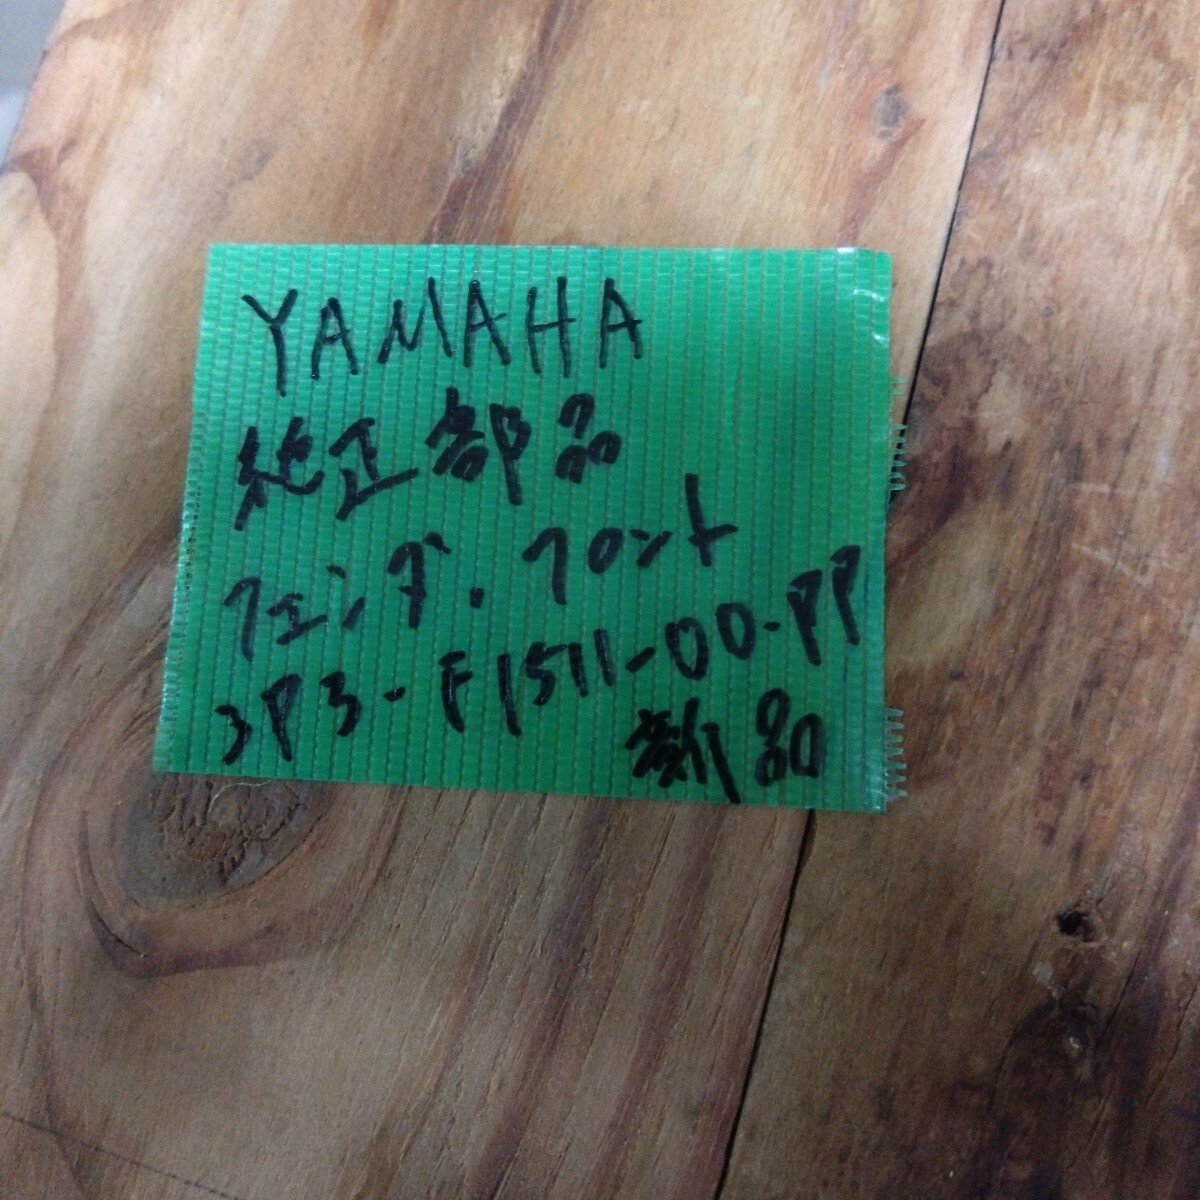 YAMAHA
純正部品
フェンダ.フロント
3P3-F1511-00-PP
新品